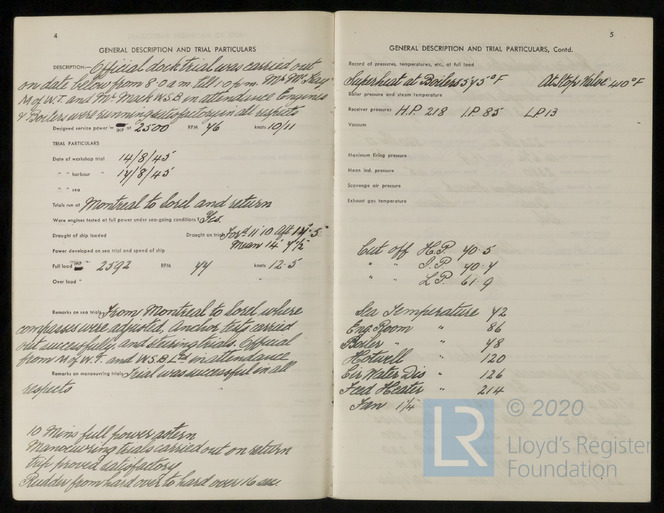 4
GENERAL DESCRIPTION AND TRIAL PARTICULARS
DESCRIPTION:— Official dock trial was carried out
on date below from 8.0 a.m. till 1.0 p.m. Mr Mc Kay
M of W.T. and Mr Mack W.S.B. in attendance Engines
& Boilers were running satisfactory in all respects
Designed service power 2500 RPM 76 knots 10/11
TRIAL PARTICULARS
Date of workshop trial 14/8/45
" " harbour " 17/8/45
" " sea
Trials run at Montreal to Sorel and return
Were engines tested at full power under sea-going conditions? Yes.
Draught of ship loaded Draught on trial For'd 11'10 Aft
Mean 14' 7½
Power developed on sea trial and speed of ship
Full load 2592 RPM 77 knots 12.5
Over load "
Remarks on sea trials From Montreal to Sorel where
compasses were adjusted, anchor tests carried
out successfully and steering trials. Official
from M of W.T. and W.S.B. Ltd in attendance
Remarks on manœuvring trials Trial was successful in all
respects
10 Mins full power astern
Manouvring trials carried out on return
trip proved satisfactory
Rudder from hard over to hard over 16 sec
5
GENERAL DESCRIPTION AND TRIAL PARTICULARS, Contd.
Record of pressures, temperatures, etc., at full load
Superheat at Boilers 575°F At Stop Valve 410°F
Boiler pressure and steam temperature
Receiver pressures H.P. 218 I.P. 85 L.P. 13
Vacuum
Maximum firing pressure
Mean ind. pressure
Scavenge air pressure
Exhaust gas temperature
Cut off H.P. 70.5
" " I.P. 70.7
" " L.P. 61.9
Sea Temperature 72
Eng Room " 86
Boiler " 78
Hotwell " 120
Cir Water Dis " 126
Feed Heater " 214
Fan 1¼
LR
© 2020
Lloyd's Register
Foundation